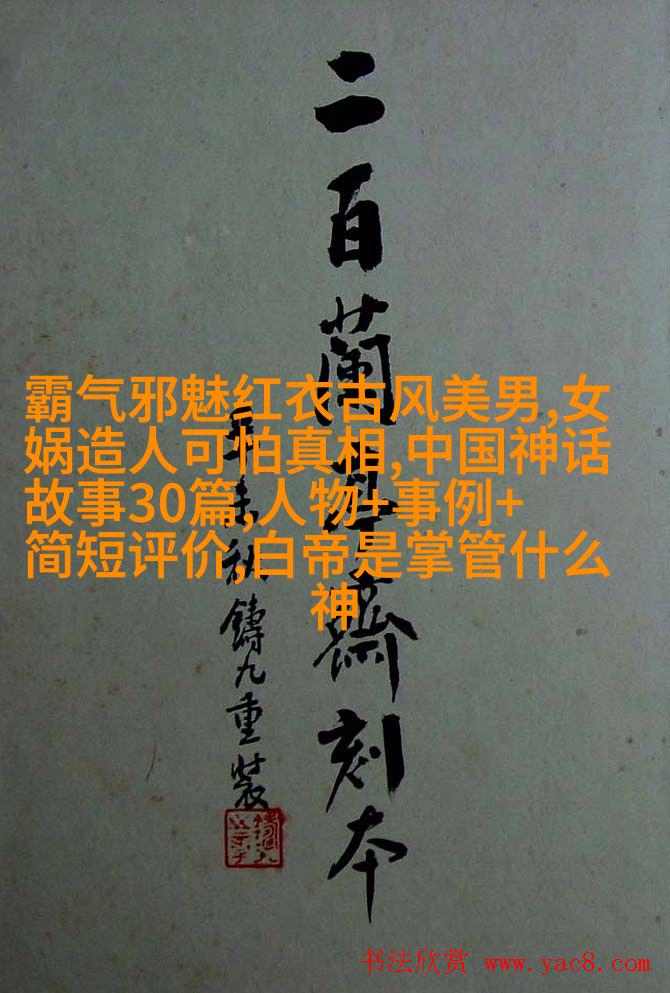 二百蘭亭齋刻本
未 鑄九重裝
霸气邪魅红衣古风美男,女
娲造人可怕真相,中国神话
故事30篇,人物+事例+
简短评价,白帝是掌管什么
神
书法欣赏 www.yac8.com